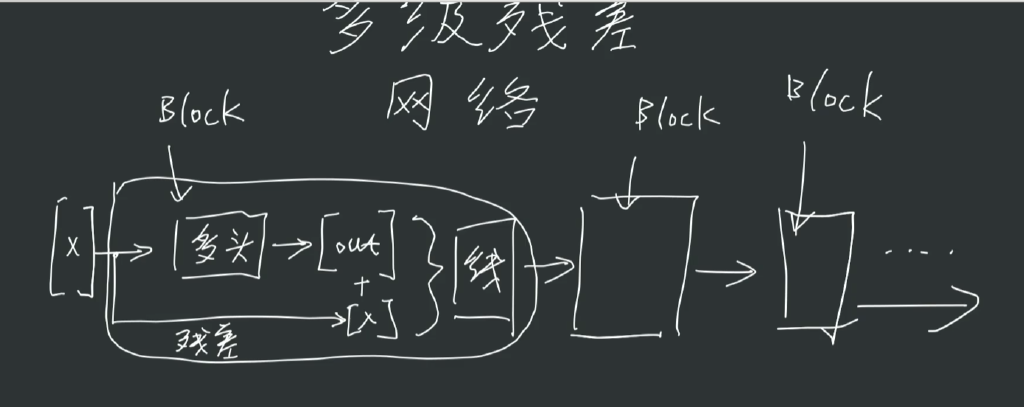 多级残差
网络
Block
Block
Block
[X]
多头
[out]
+
[X]
线
残差
....